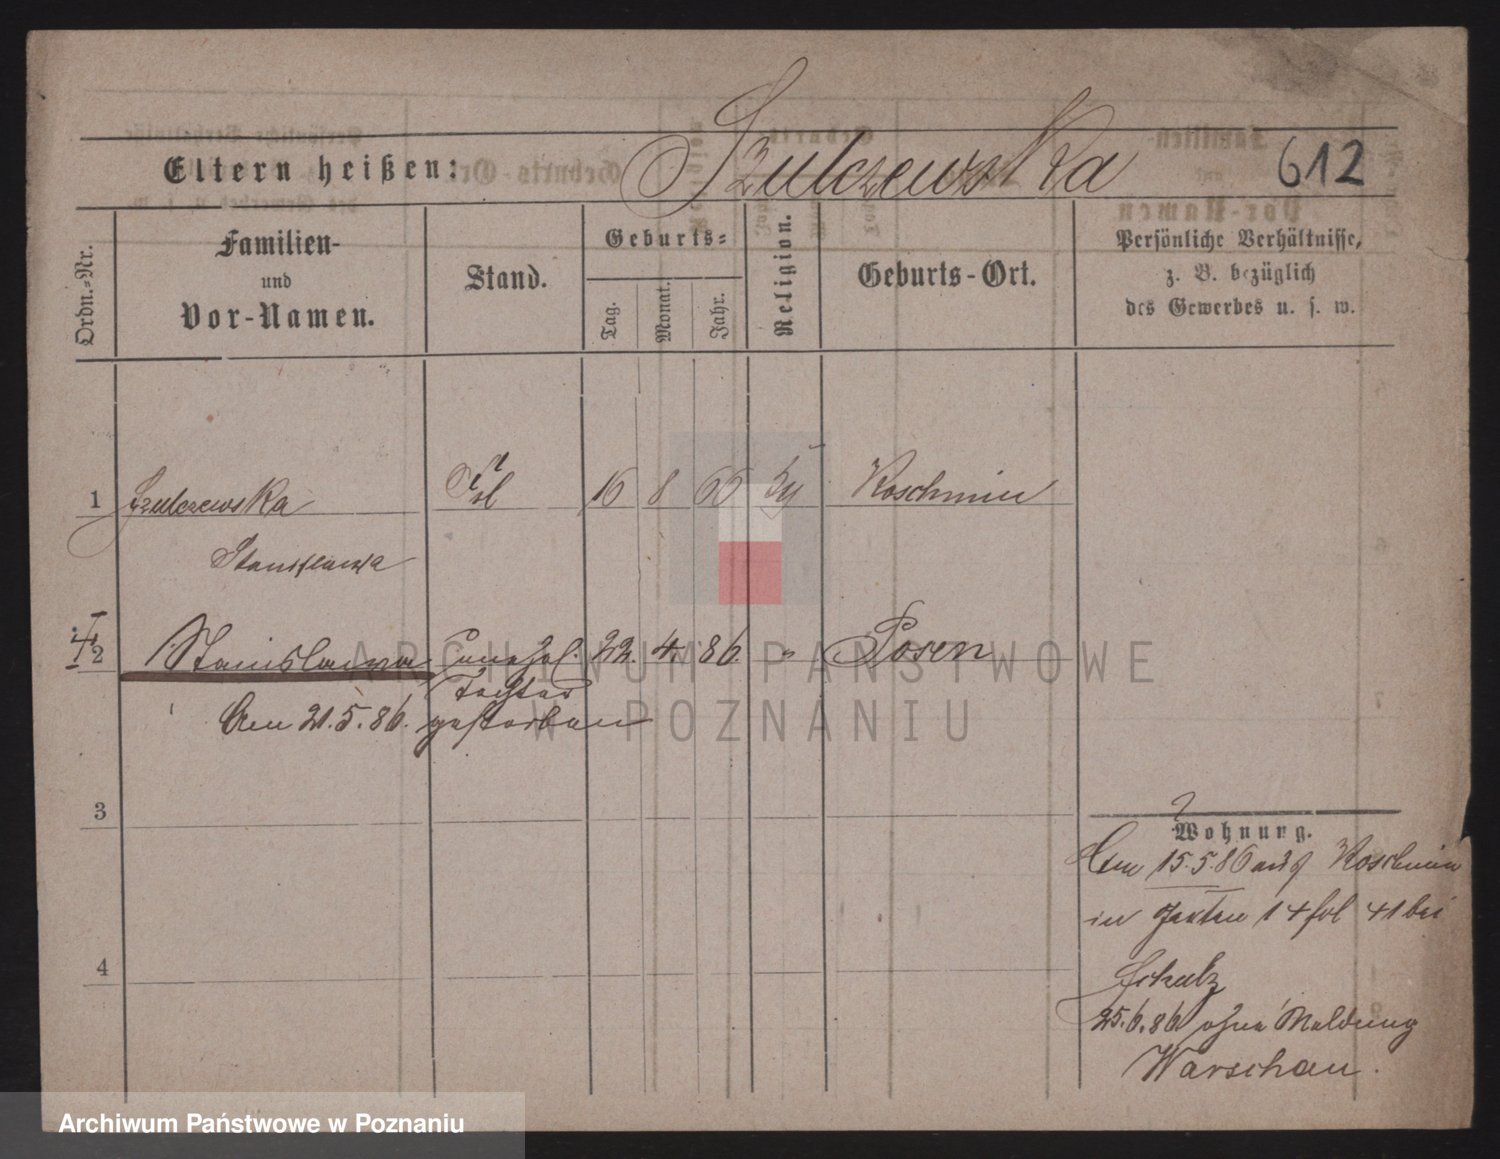 Eltern heißen: Szulczewska 612
Ordn.-Nr.
Familien-
und
Vor-Namen.
Stand.
Geburts-
Tag.
Monat.
Jahr.
Religion.
Geburts-Ort.
Persönliche Verhältnisse,
z. B. bezüglich
des Gewerbes u. s. w.
1 Szulczewska Frl 16 8 66 Koschmin
Stanislawa
2 Stanislawa unehel. 22. 4. 86. " Posen
Tochter
Am 21.5.86. gestorben
3
Wohnung.
Am 15.5.86 aus Koschmin
in 14 fol 41 bei
4
Schulz
25.6.86 ohne Meldung
Warschau.
ARCHIWUM PAŃSTWOWE
W POZNANIU
Archiwum Państwowe w Poznaniu